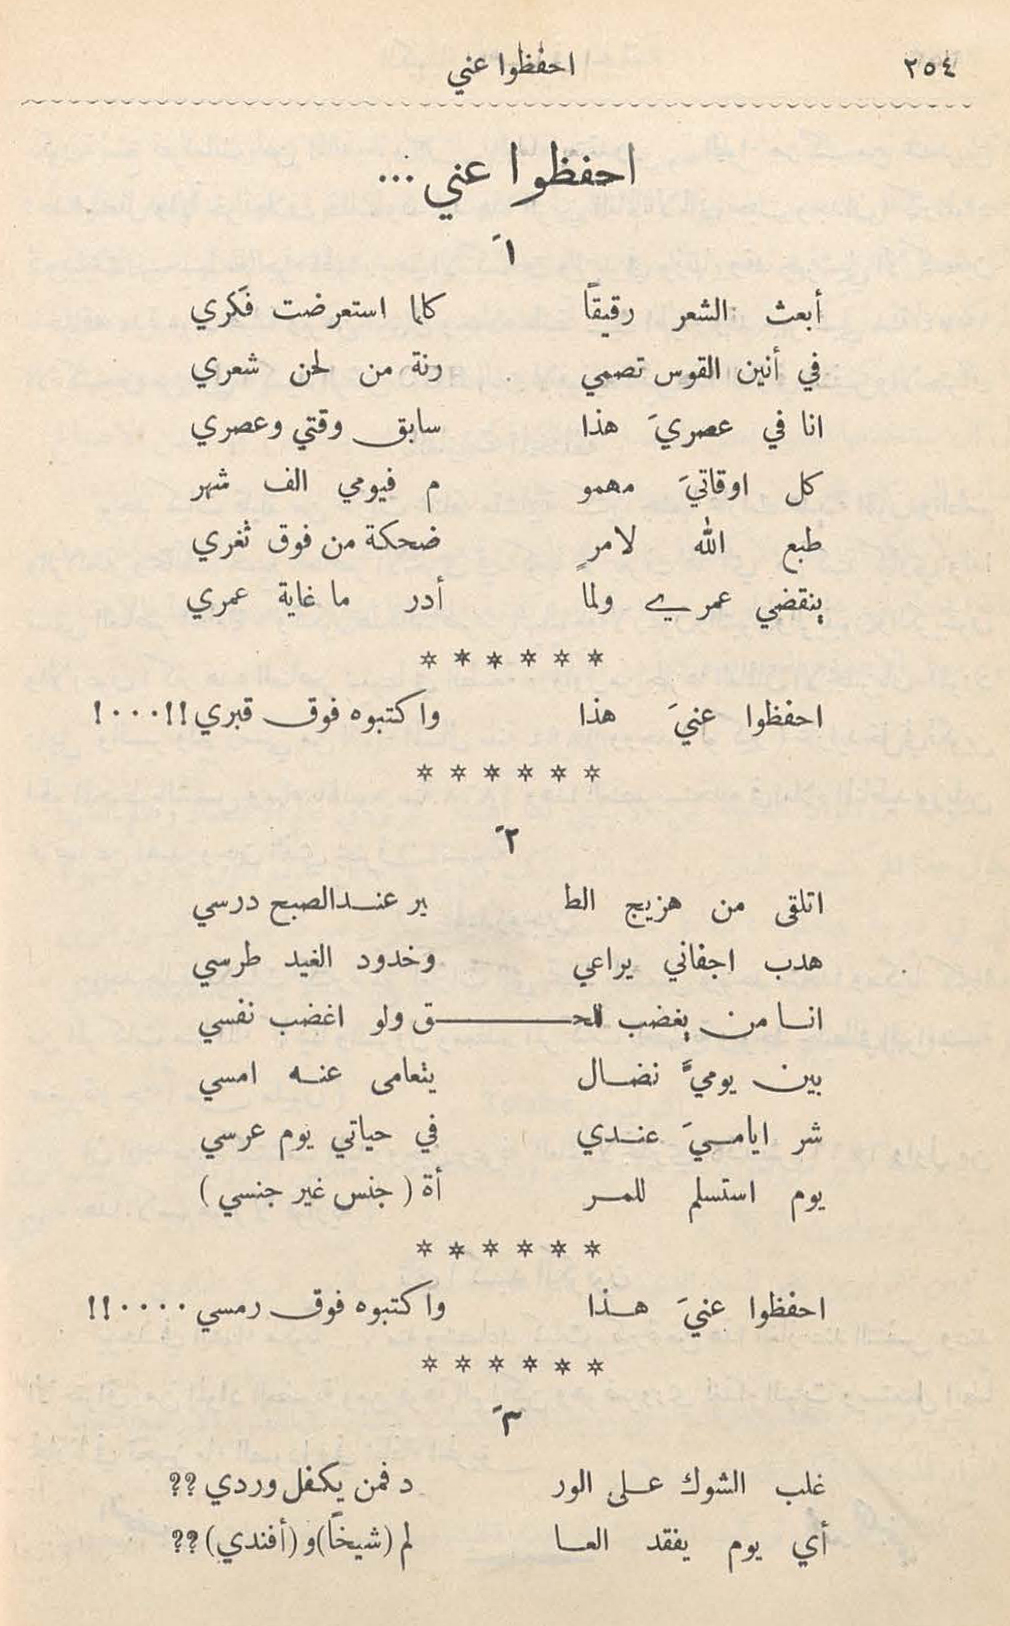 ٢٥٤ احفظوا عني
احفظوا عني ...
١ً
أبعث الشعر رقيقاً كلما استعرضت فكري
في أنين القوس تصمي رنة من لحن شعري
انا في عصريَ هذا سابق وقتي وعصري
كل اوقاتيَ مهمو م فيومي الف شهر
طبع الله لامرٍ ضحكة من فوق ثغري
ينقضي عمري ولما أدر ما غاية عمري
* * * * * *
احفظوا عنيَ هذا واكتبوه فوق قبري!!...!
* * * * * *
٢ً
اتلقى من هزيج الط ير عند الصبح درسي
هدب اجفاني يراعي وخدود الغيد طرسي
انا من يغضب للحـ ـق ولو اغضب نفسي
بين يوميَّ نضال يتعامى عنه امسي
شر اياميَ عندي في حياتي يوم عرسي
يوم استسلم للمر أة (جنس غير جنسي)
* * * * * *
احفظوا عنيَ هذا واكتبوه فوق رمسي ....!!
* * * * * *
٣ً
غلب الشوك على الور د فمن يكفل وردي ??
أي يوم يفقد العا لم (شيخاً) و (أفندي) ??